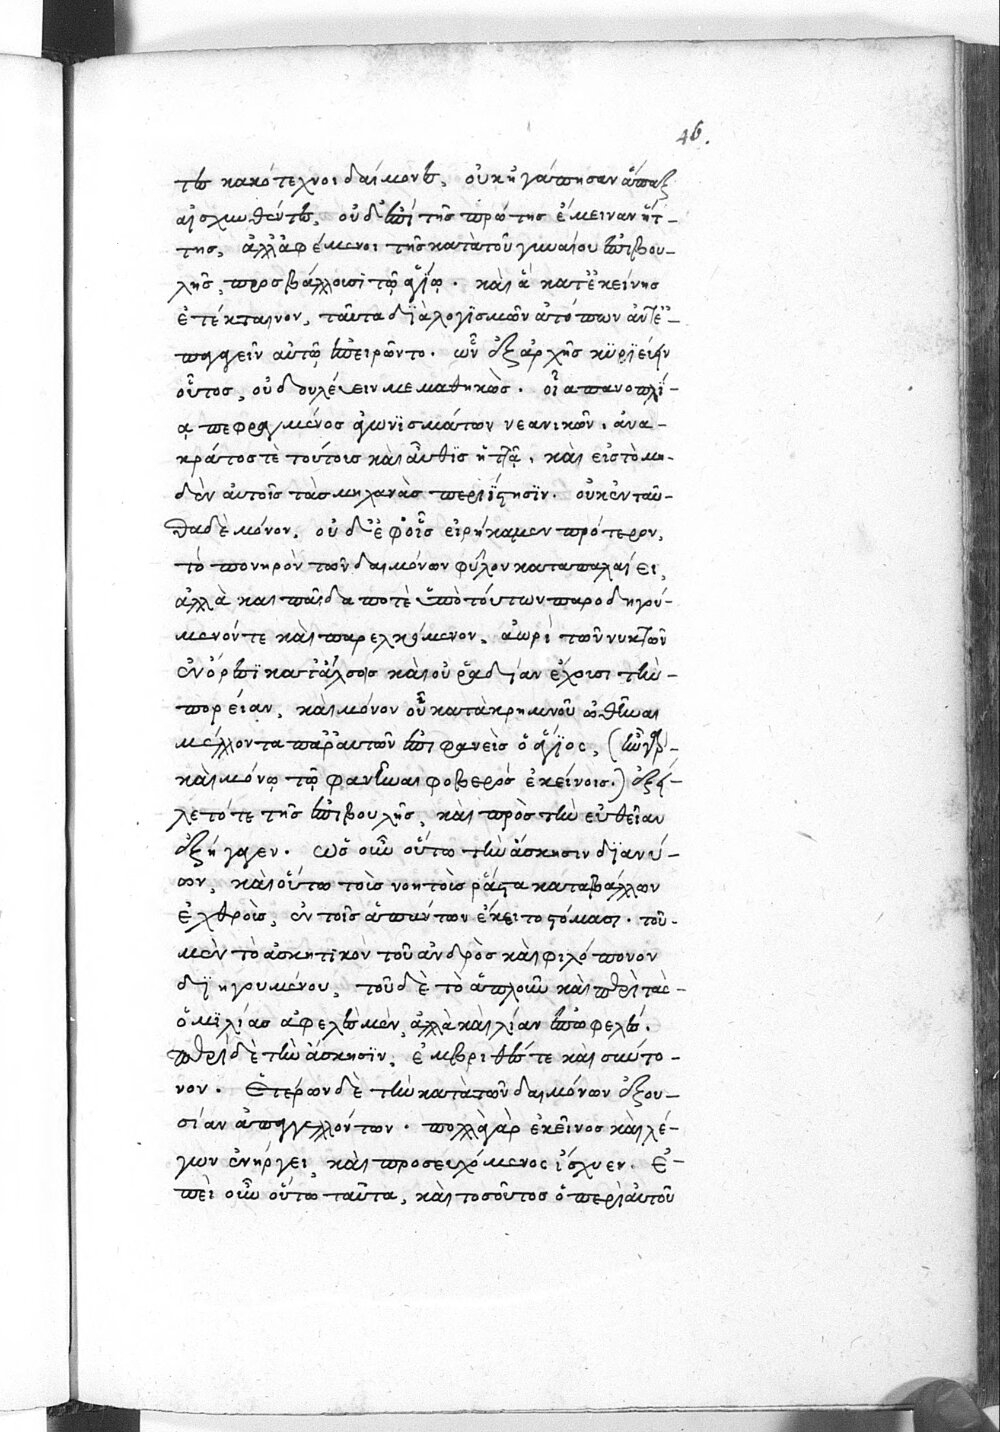 46.
τες κακότεχνοι δαίμονες, οὐκ ἠγάπησαν ἅπαξ
αἰσχυνθέντες, οὐδ' ἐπὶ τῆς πρώτης ἔμειναν ἥτ-
της, ἀλλ' ἀφέμενοι τῆς κατὰ τοῦ γυναίου ἐπιβου-
λῆς, προσβάλλουσι τῷ ἁγίῳ. καὶ ἃ κατ' ἐκείνης
ἐτέκταινον, ταῦτα διὰ λογισμῶν ἀτόπων ἀντε-
παγαγεῖν αὐτῷ ἐπειρῶντο. ὧν ἐξ ἀρχῆς κυριεύειν
οὗτος, οὐ δουλεύειν μεμαθηκὼς. οἷα πανοπλί-
ᾳ πεφραγμένος ἀγωνισμάτων νεανικῶν, ἀνα-
κράτος τὲ τούτοις καὶ αὖθις ἡττᾷ, καὶ εἰς τὸ μη-
δὲν αὐτοῖς τὰς μηχανὰς περιΐστησιν. οὐκ ἐνταῦ-
θα δὲ μόνον, οὐδ' ἐφ' οἷς εἰρήκαμεν πρότερον,
τὸ πονηρὸν τῶν δαιμόνων φῦλον καταπαλαίει,
ἀλλὰ καὶ παῖδα ποτὲ ὑπὸ τούτων παροδηγού-
μενόν τε καὶ παρελκόμενον, ἀωρὶ τῶν νυκτῶν
ἐν ὄρεσι κατ' ἄλσους καὶ οὐ ῥᾳδίαν ἔχουσι τὴν
πορείαν, καὶ μόνον οὐ κατὰ κρημνοῦ ὠθεῖσθαι
μέλλοντα παρ' αὐτῶν ἐπιφανεὶς ὁ ἅγιος, (ἦν γὰρ
καὶ μόνῳ τῷ φανῆναι φοβερὸς ἐκείνοις.) ἐξεί-
λετό τε τῆς ἐπιβουλῆς, καὶ πρὸς τὴν εὐθεῖαν
ἐξήγαγεν. ὡς οὖν οὕτω τὴν ἄσκησιν διανύ-
ων, καὶ οὕτω τοῖς νοητοῖς ῥᾷστα καταβάλλων
ἐχθροῖς, ἐν τοῖς ἁπάντων ἔκειτο στόμασι. τοῦ
μὲν τὸ ἀσκητικὸν τοῦ ἀνδρὸς καὶ φιλόπονον
διηγουμένου, τοῦ δὲ τὸ ἁπλοῦν καὶ περὶ τὰς
ὁμιλίας ἀφελὲς μὲν, ἀλλὰ καὶ λίαν ἐπωφελές.
περὶ δὲ τὴν ἄσκησιν, ἐμβριθές τε καὶ σύντο-
νον. ἑτέρων δὲ τὴν κατὰ τῶν δαιμόνων ἐξου-
σίαν ἀπαγγελλόντων. πολλὰ γὰρ ἐκεῖνος καὶ λέ-
γων ἐνήργει, καὶ προσευχόμενος ἴσχυεν. Ἐ-
πεὶ οὖν οὕτω ταῦτα, καὶ τοσοῦτος ὁ περὶ αὐτοῦ